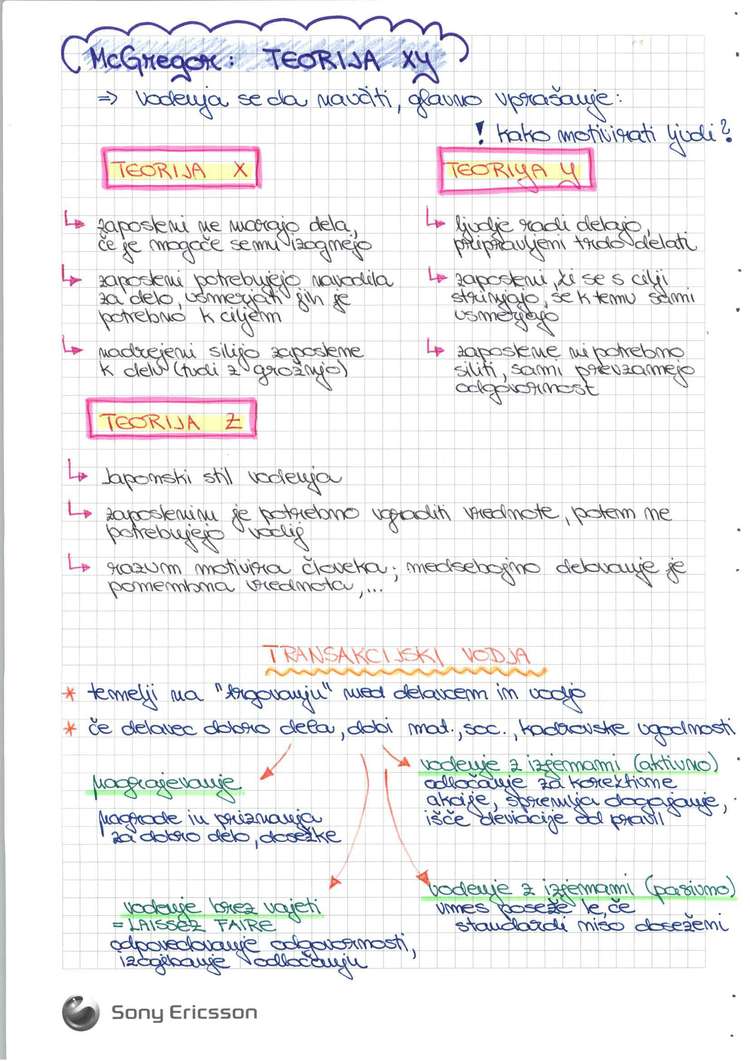 McGregor: TEORIJA XY
=> vodenja se da naučiti, glavno vprašanje:
! kako motivirati ljudi?
TEORIJA X
↳ zaposleni ne marajo dela,
če je mogoče se mu izognejo
↳ zaposleni potrebujejo navodila
za delo, usmerjati jih je
potrebno k ciljem
↳ nadrejeni silijo zaposlene
k delu (tudi z grožnjo)
TEORIYA Y
↳ ljudje radi delajo,
pripravljeni trdo delati
↳ zaposleni, ki se s cilji
strinjajo, se k temu sami
usmerjajo
↳ zaposlene ni potrebno
siliti, sami prevzamejo
odgovornost
TEORIJA Z
↳ Japonski stil vodenja
↳ zaposlenim je potrebno vgraditi vrednote, potem ne
potrebujejo vodij
↳ razum motivira človeka; medsebojno delovanje je
pomembna vrednota,...
TRANSAKCIJSKI VODJA
* temelji na "trgovanju" med delavcem in vodjo
* če delavec dobro dela, dobi mat., soc., kadrovske ugodnosti
nagrajevanje
nagrade in priznanja
za dobro delo, dosežke
vodenje z izjemami (aktivno)
odločanje za korektivne
akcije, spremlja dogajanje,
išče deviacije od pravil
vodenje brez vajeti
= LAISSEZ FAIRE
odpovedovanje odgovornosti,
izogibanje odločanju
vodenje z izjemami (pasivno)
vmes poseže le, če
standardi niso doseženi
Sony Ericsson